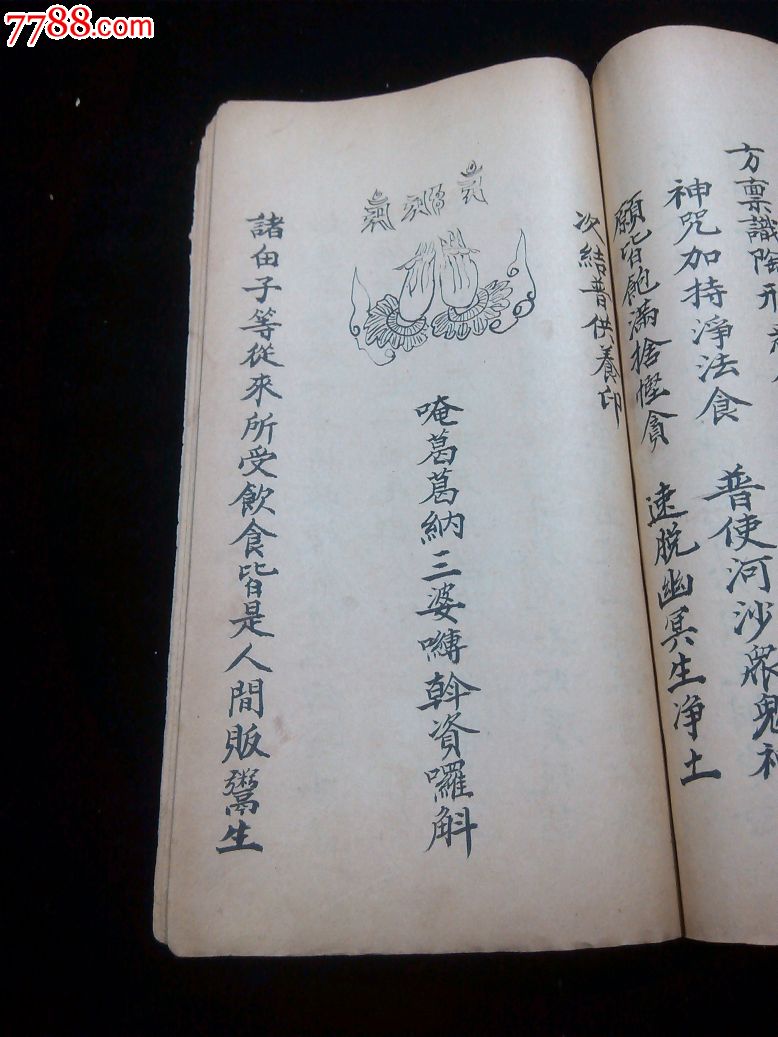 7788.com
中国收藏热线
方稟識陶形
神咒加持淨法食 普使河沙衆鬼神
願皆飽滿捨慳貪 速脫幽冥生净土
次結普供養印
唵葛葛納三婆嚩斡資囉斛
諸甶子等從來所受飲食皆是人間販鬻生